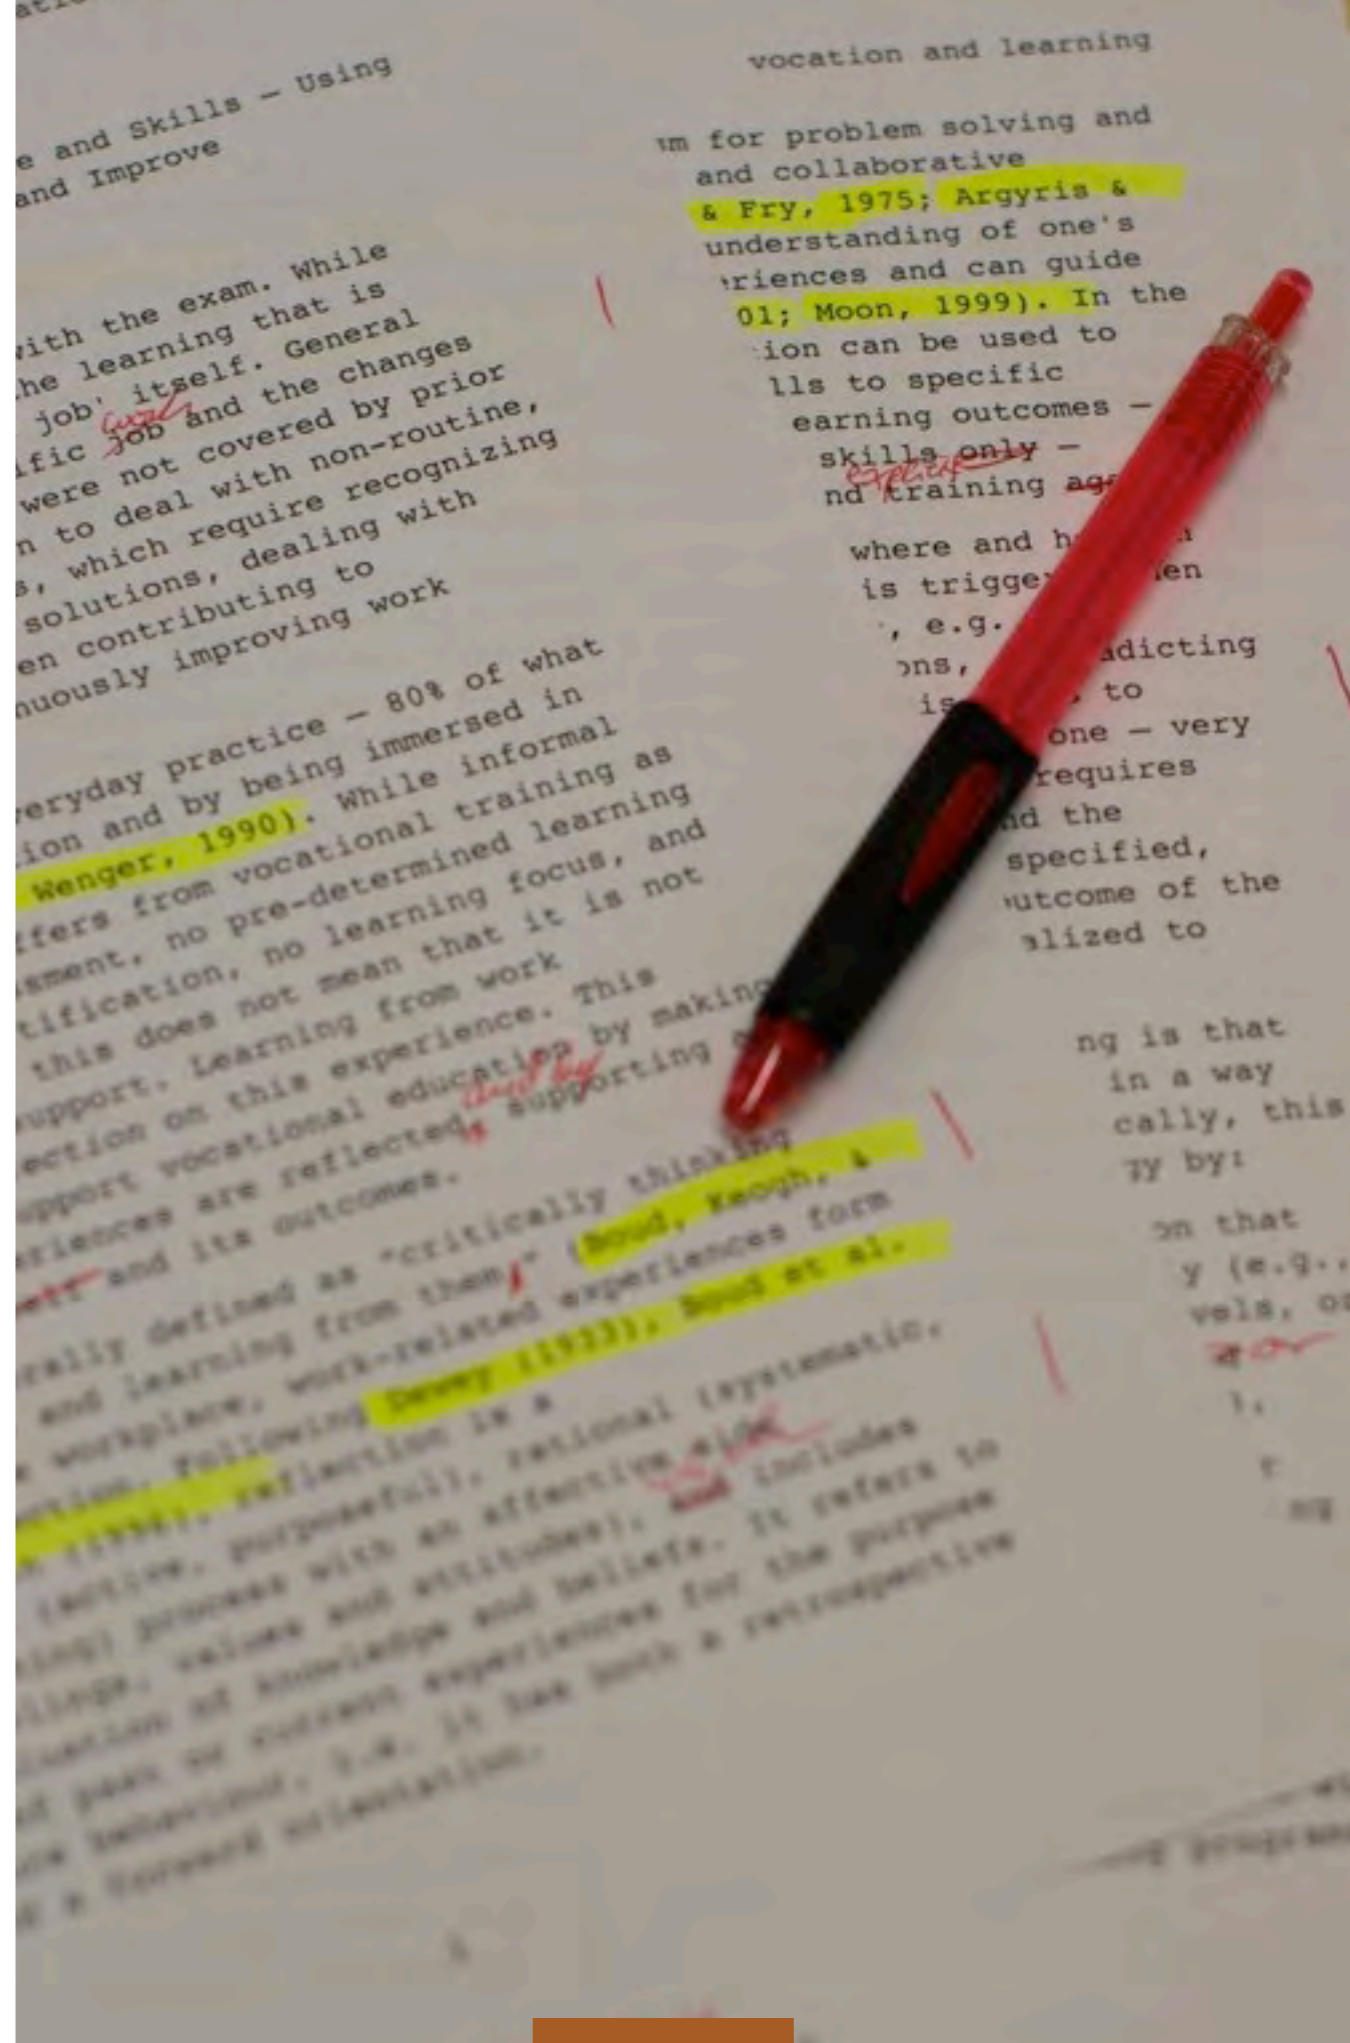 e and Skills — Using
and Improve
with the exam. While
the learning that is
job' itself. General
ific job and the changes
were not covered by prior
n to deal with non-routine,
s, which require recognizing
solutions, dealing with
en contributing to
nuously improving work
veryday practice — 80% of what
tion and by being immersed in
Wenger, 1990). While informal
ffers from vocational training as
sment, no pre-determined learning
tification, no learning focus, and
this does not mean that it is not
support. Learning from work
ection on this experience. This
upport vocational education by making
and by
eriences are reflected, supporting
and its outcomes.
rally defined as "critically thinking
and learning from them," (Boud, Keogh, &
workplace, work-related experiences form
Following Dewey (1933), Boud et al.
reflection is a
(active, purposeful), rational (systematic,
process with an affective side
values and attitudes), and includes
of knowledge and beliefs. It refers to
past or current experiences for the purpose
behaviour, i.e. it has both a retrospective
a forward orientation.
vocation and learning
m for problem solving and
and collaborative
& Fry, 1975; Argyris &
understanding of one's
riences and can guide
01; Moon, 1999). In the
ion can be used to
lls to specific
earning outcomes —
skills only —
nd training
where and
is trigge
, e.g.
ons, adicting
is to
one — very
requires
nd the
specified,
utcome of the
alized to
ng is that
in a way
cally, this
gy by:
on that
y (e.g.,
vels, or
or